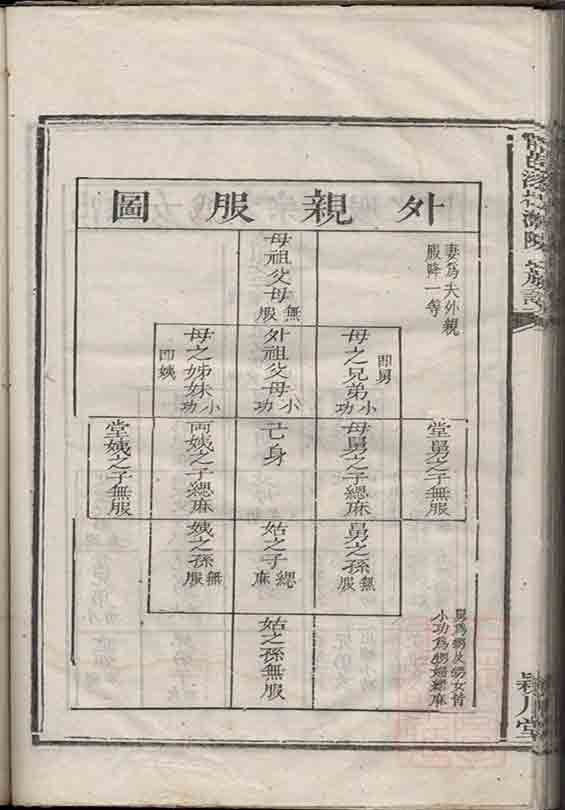 外親服圖
妻為夫外親
服降一等
母祖父母無服
即舅
母之兄弟小功
外祖父母小功
母之姊妹小功
即姨
堂舅之子無服
母舅之子緦麻
己身
両姨之子緦麻
堂姨之子無服
舅之孫無服
姑之子緦麻
姨之孫無服
姑之孫無服
舅為甥及甥女皆
小功為甥婦緦麻
潁川堂